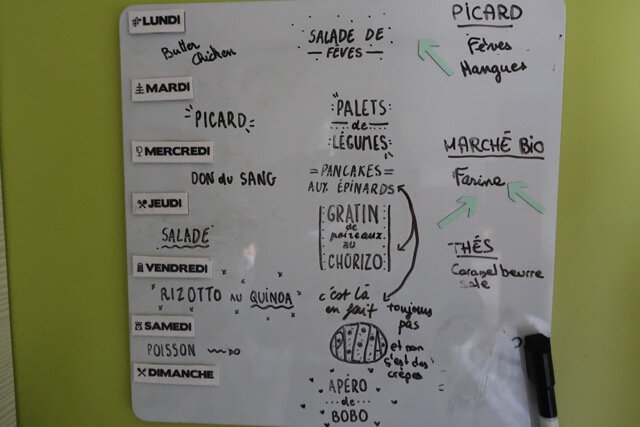 LUNDI
Butter
Chicken
SALADE DE
FÈVES
MARDI
PICARD
PALETS
de
LÉGUMES
MERCREDI
DON du SANG
PANCAKES
AUX ÉPINARDS
JEUDI
SALADE
GRATIN
de
poireaux
au
CHORIZO
VENDREDI
RIZOTTO AU QUINOA
c'est là
en fait
toujours
pas
SAMEDI
POISSON
et non
c'est des
crêpes
DIMANCHE
APÉRO
de
BOBO
PICARD
Fèves
Mangues
MARCHÉ BIO
Farine
THÉS
Caramel beurre
salé